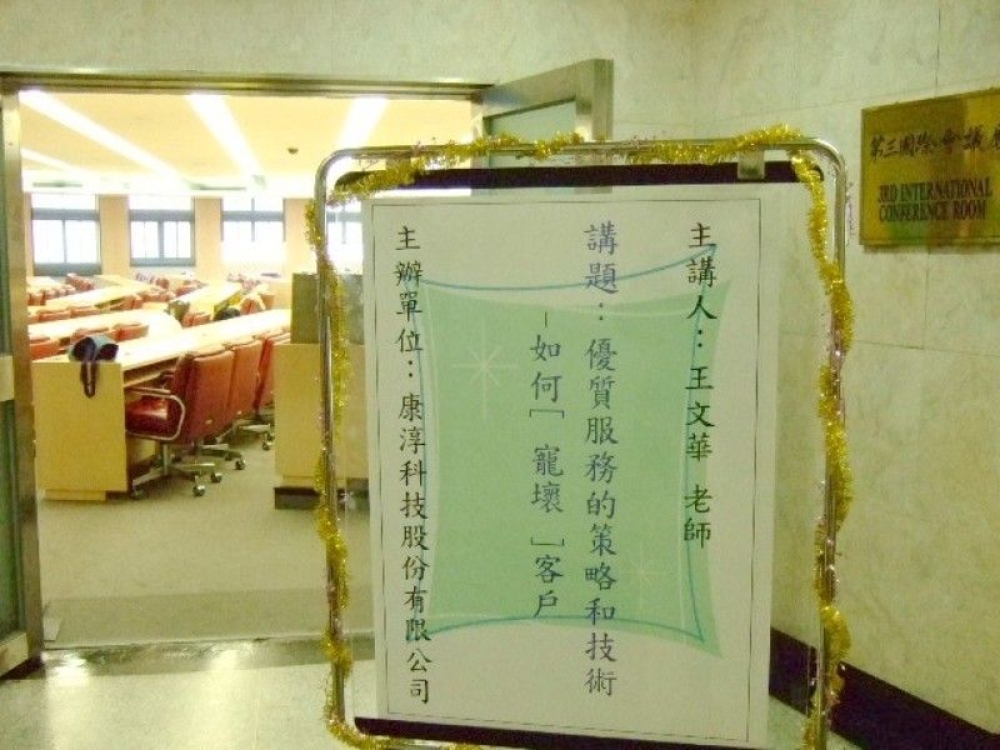 主講人：王文華 老師
講題：優質服務的策略和技術
－如何「寵壞」客戶
主辦單位：康淳科技股份有限公司
第三國際會議
3RD INTERNATIONAL
CONFERENCE ROOM